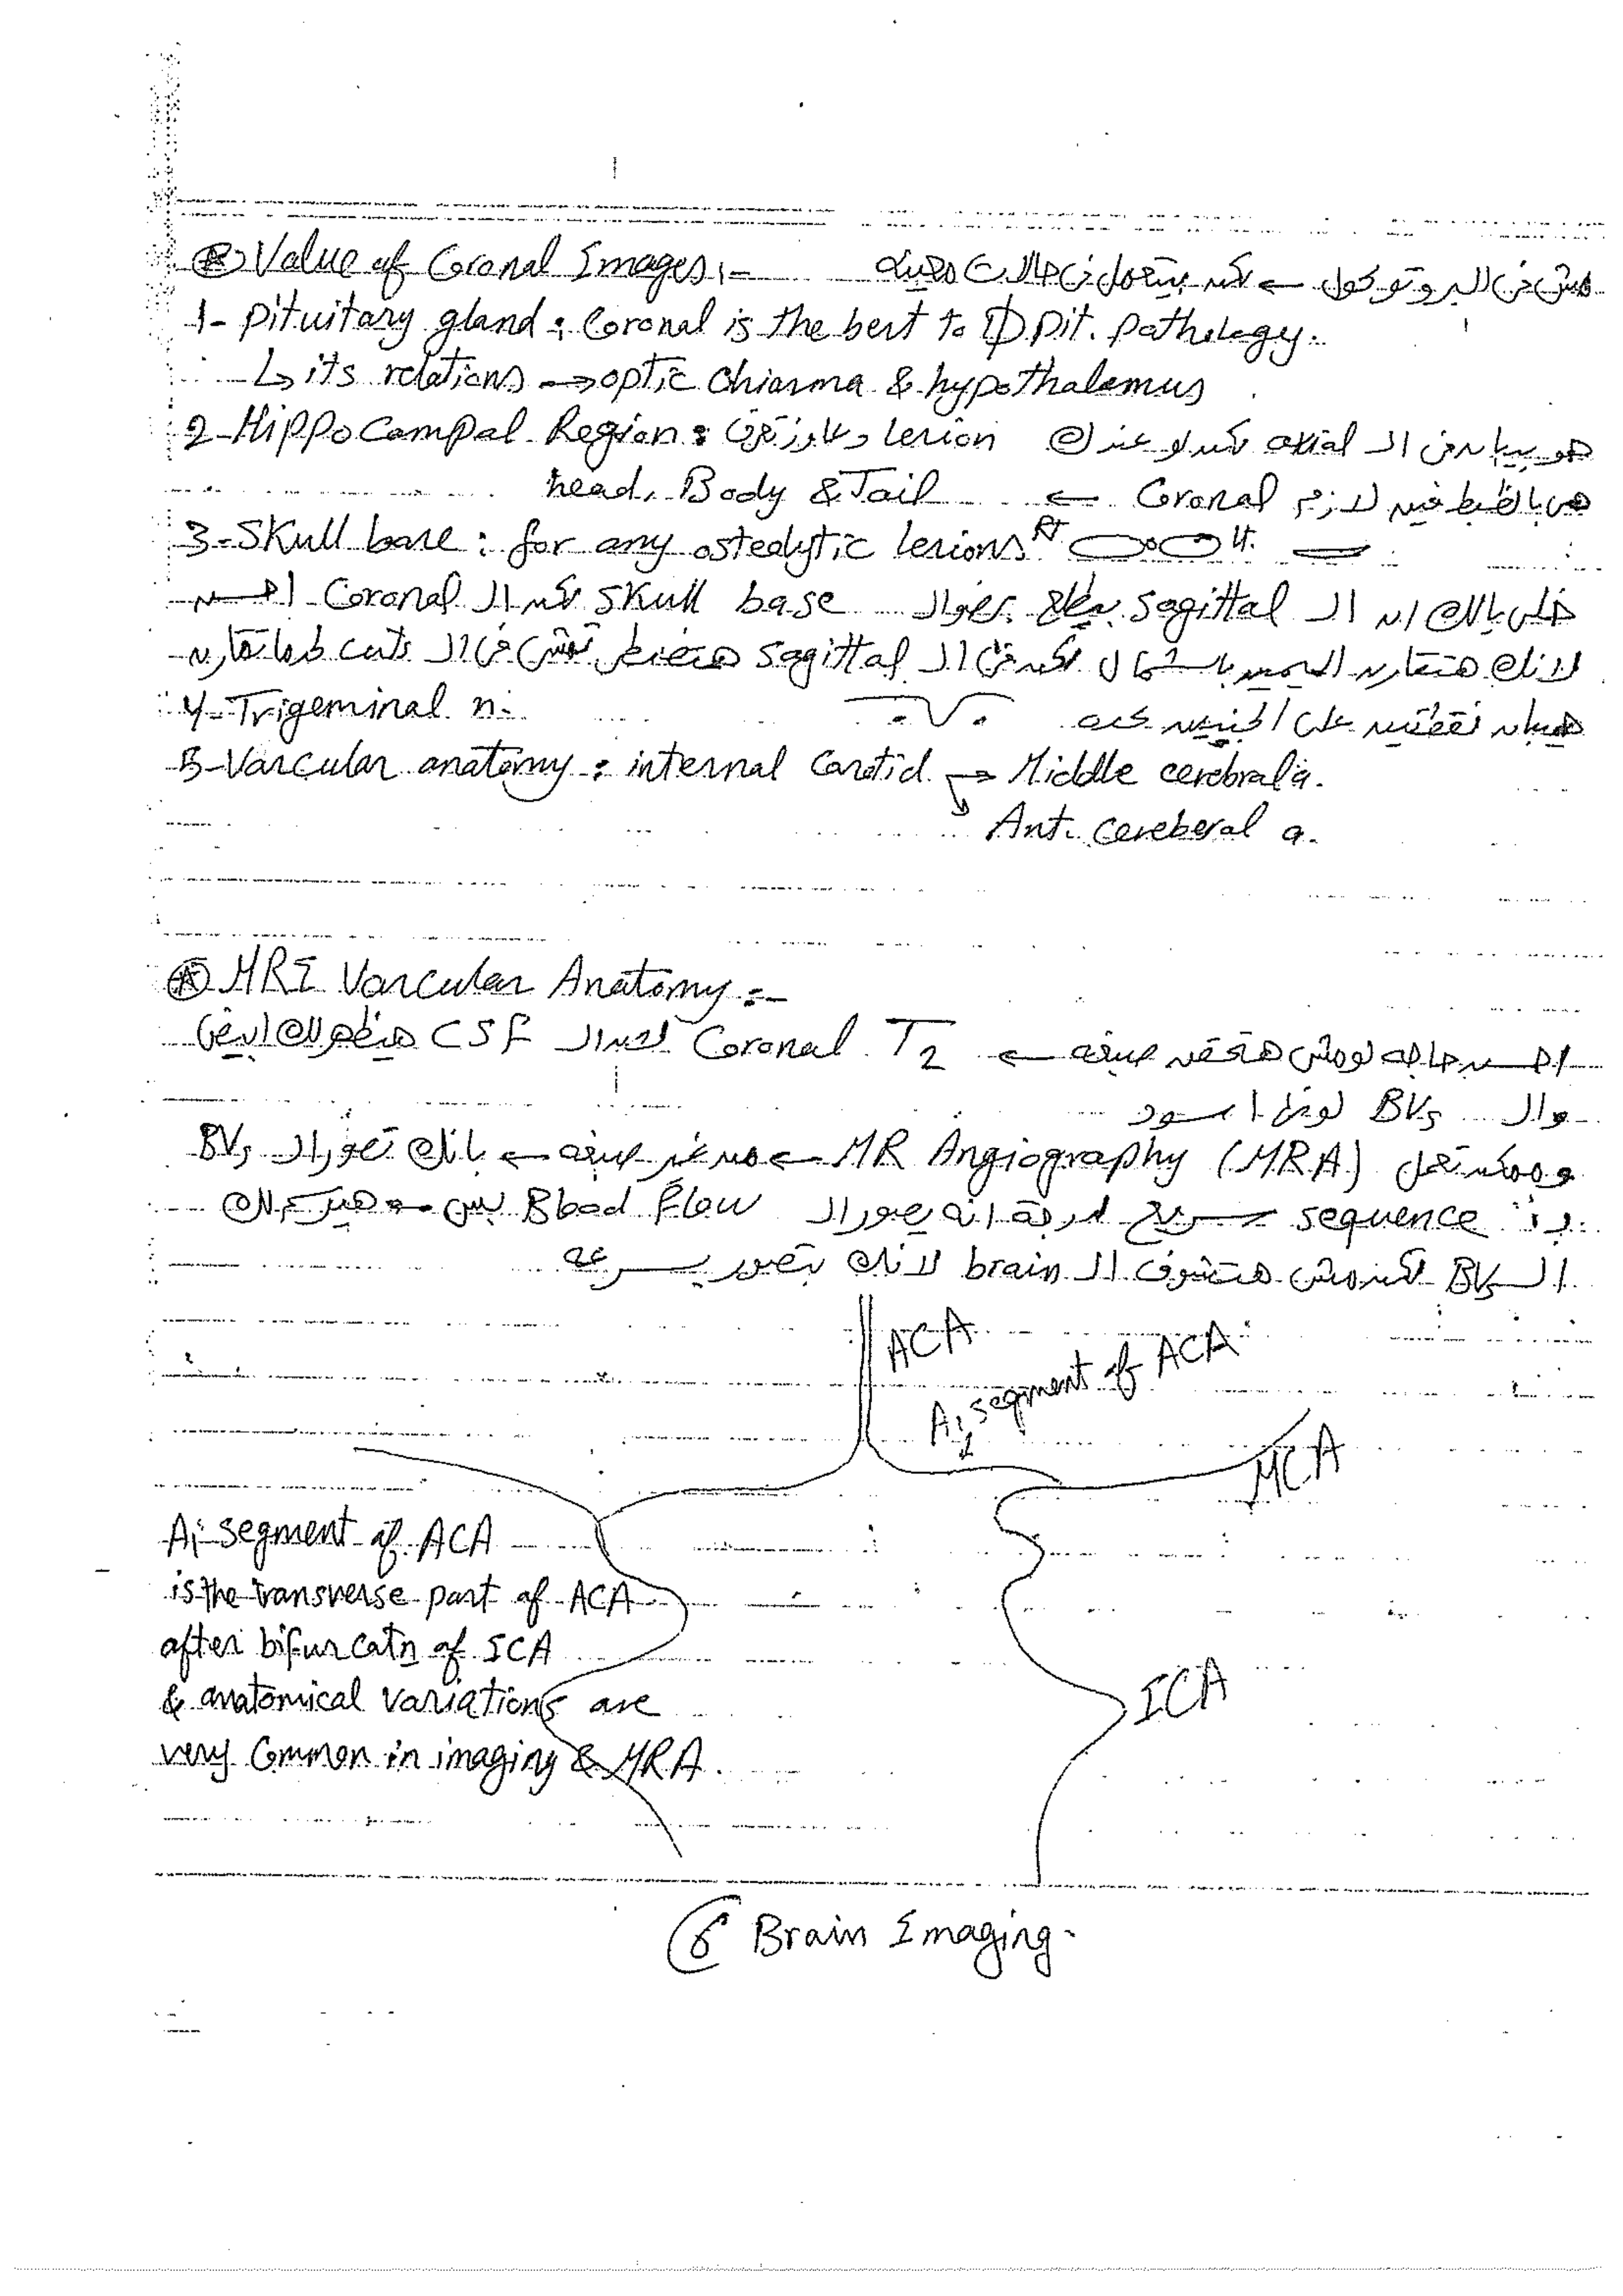 Ⓐ Value of Coronal Images:- مش في البروتوكول ← لكن بيتعمل في حالات معينه
1- Pituitary gland: Coronal is the best to D pit. pathology.
↳ its relations → optic chiasma & hypothalamus
2- Hippocampal Region: هو بيبان في الـ axial لكن لو عندك lesion وعاوز تعرف
هي بالظبط فين لازم Coronal ← head, Body & Tail
3- Skull base: for any osteolytic lesions Rt Lt.
خلي بالك ان الـ sagittal بيطلع الـ skull base لكن الـ Coronal احسن
لانك هتقارن اليمين بالشمال لكن في الـ sagittal هتفضل تفتش في الـ cuts لما تقارن
4- Trigeminal n: هيبان نقطتين على الجنبين كده
5- Vascular anatomy: internal Carotid → Middle cerebral a.
Ant. cereberal a.
Ⓐ MRI Vascular Anatomy:-
احسن حاجه لو مش هتحقن صبغه ← Coronal T2 لان الـ CSF هيظهرلك ابيض
والـ BVs لونها اسود
وممكن تعمل MR Angiography (MRA) ← من غير صبغه ← بانك تصور الـ BVs
بـ sequence سريع لدرجة انه يصور الـ Blood flow بس → هيرسملك
الـ BVs لكن مش هتشوف الـ brain لانك بتصور بسرعه
ACA
A1 segment of ACA
MCA
A1 segment of ACA
is the transverse part of ACA
after bifurcatn of ICA
& anatomical variations are
very Common in imaging & MRA.
ICA
6 Brain Imaging.